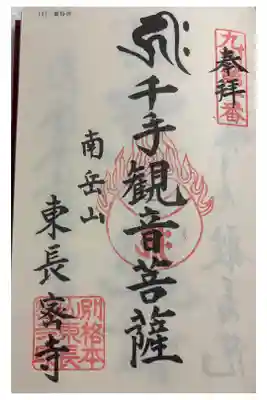 奉拝
千手観音菩薩
南岳山
東長密寺
別格本
山東長